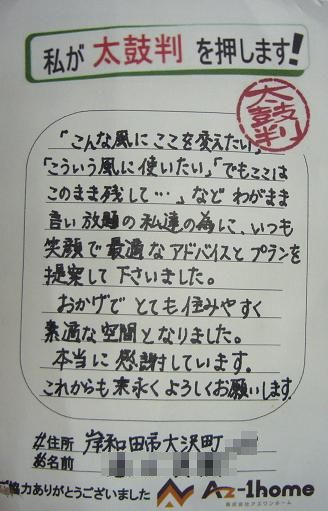 私が 太鼓判 を押します!
太鼓判
「こんな風に ここを変えたい」
「こういう風に使いたい」「でもここは
このまま残して…」など わがまま
言い放題の私達の為に、いつも
笑顔で最適なアドバイスとプランを
提案して下さいました。
おかげで とても住みやすく
素適な空間となりました。
本当に 感謝しています。
これからも末永くよろしくお願いします
ご住所 岸和田市大沢町
お名前
ご協力ありがとうございました
Az-1home
株式会社アズワンホーム